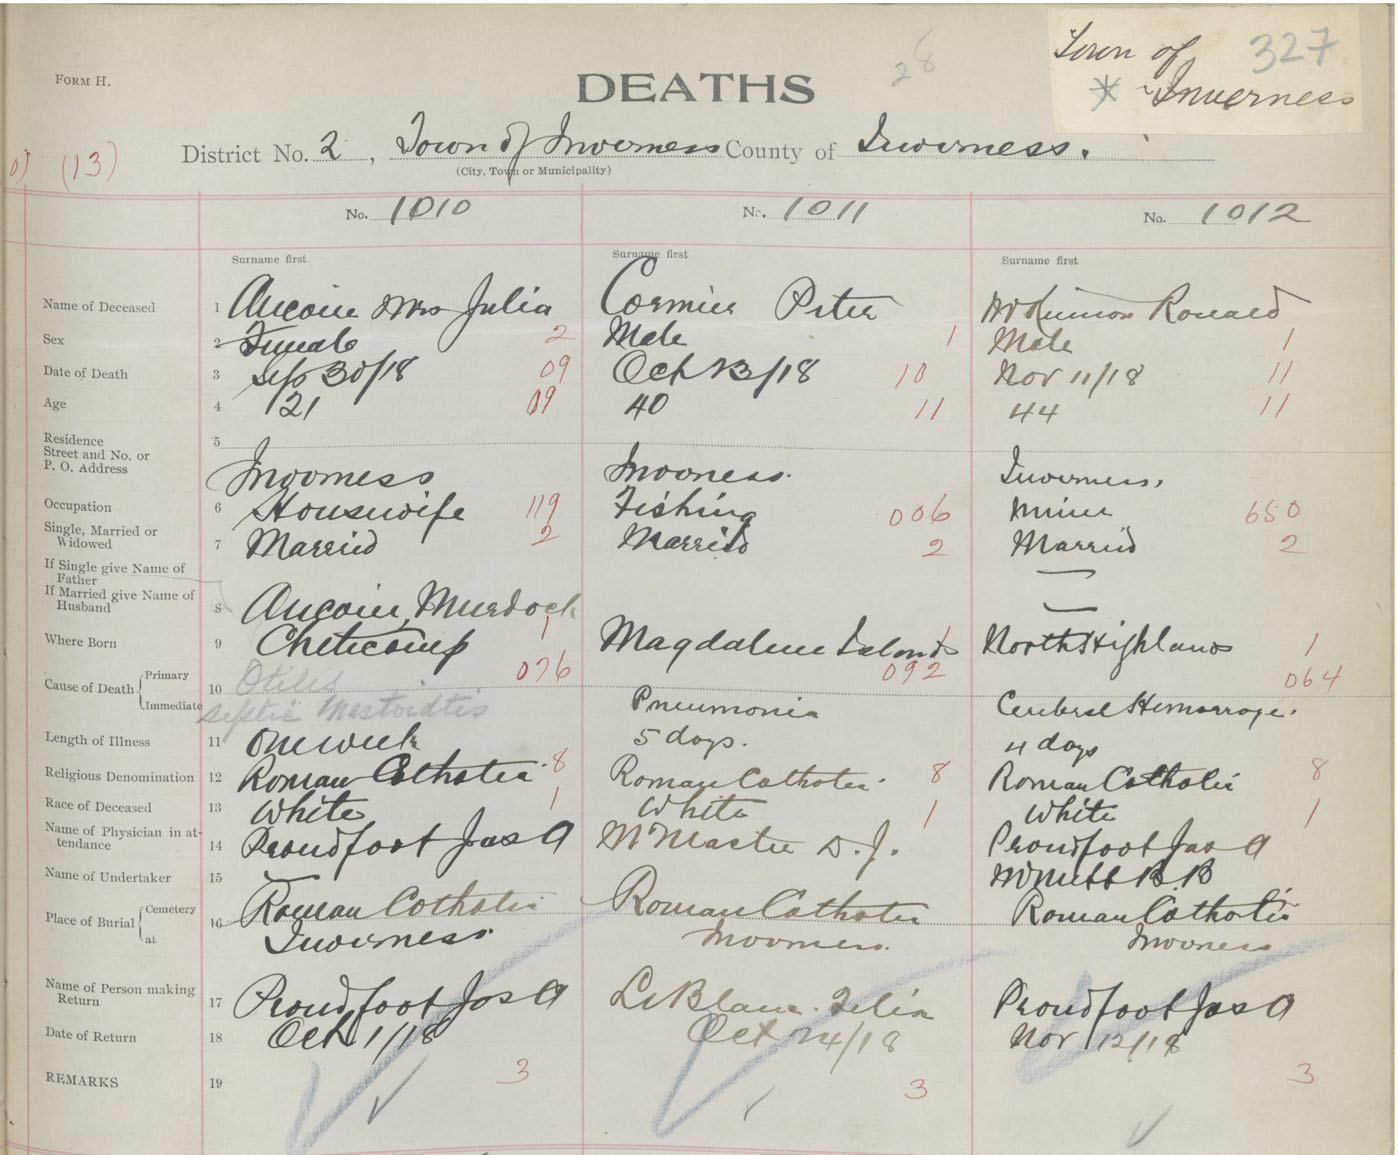 FORM H.
28
DEATHS
Town of 327
* Inverness
District No. 2, Town of Inverness County of Inverness.
(City, Town or Municipality)
(13)
No. 1010 No. 1011 No. 1012
Surname first Surname first Surname first
Name of Deceased 1 Aucoin Mrs Julia Cormier Peter McKinnon Ronald
Sex 2 Female 2 Male 1 Male 1
Date of Death 3 Sep 30/18 09 Oct 13/18 10 Nov 11/18 11
Age 4 21 09 40 11 44 11
Residence
Street and No. or
P. O. Address
5 Inverness Inverness. Inverness.
Occupation 6 Housewife 119 Fishing 006 Miner 650
Single, Married or
Widowed
7 Married 2 Married 2 Married 2
If Single give Name of
Father
If Married give Name of
Husband
8 Aucoin, Murdock — —
Where Born 9 Cheticamp 1 Magdalene Islands 1 North Highlands 1
076 092 064
Cause of Death Primary 10 Otitis
Immediate Septic Mastoiditis Pneumonia Cerebral Hemorrage.
Length of Illness 11 One week 5 days. 4 days
Religious Denomination 12 Roman Catholic 8 Roman Catholic 8 Roman Catholic 8
Race of Deceased 13 White 1 White 1 White 1
Name of Physician in at-
tendance
14 Proudfoot Jas A McMaster D. J. Proudfoot Jas A
Name of Undertaker 15 B. B
Place of Burial Cemetery 16 Roman Catholic Roman Catholic Roman Catholic
at Inverness Inverness. Inverness
Name of Person making
Return
17 Proudfoot Jas A LeBlanc Proudfoot Jas A
Date of Return 18 Oct 1/18 Oct 24/18 Nov 12/18
REMARKS 19 3 3 3